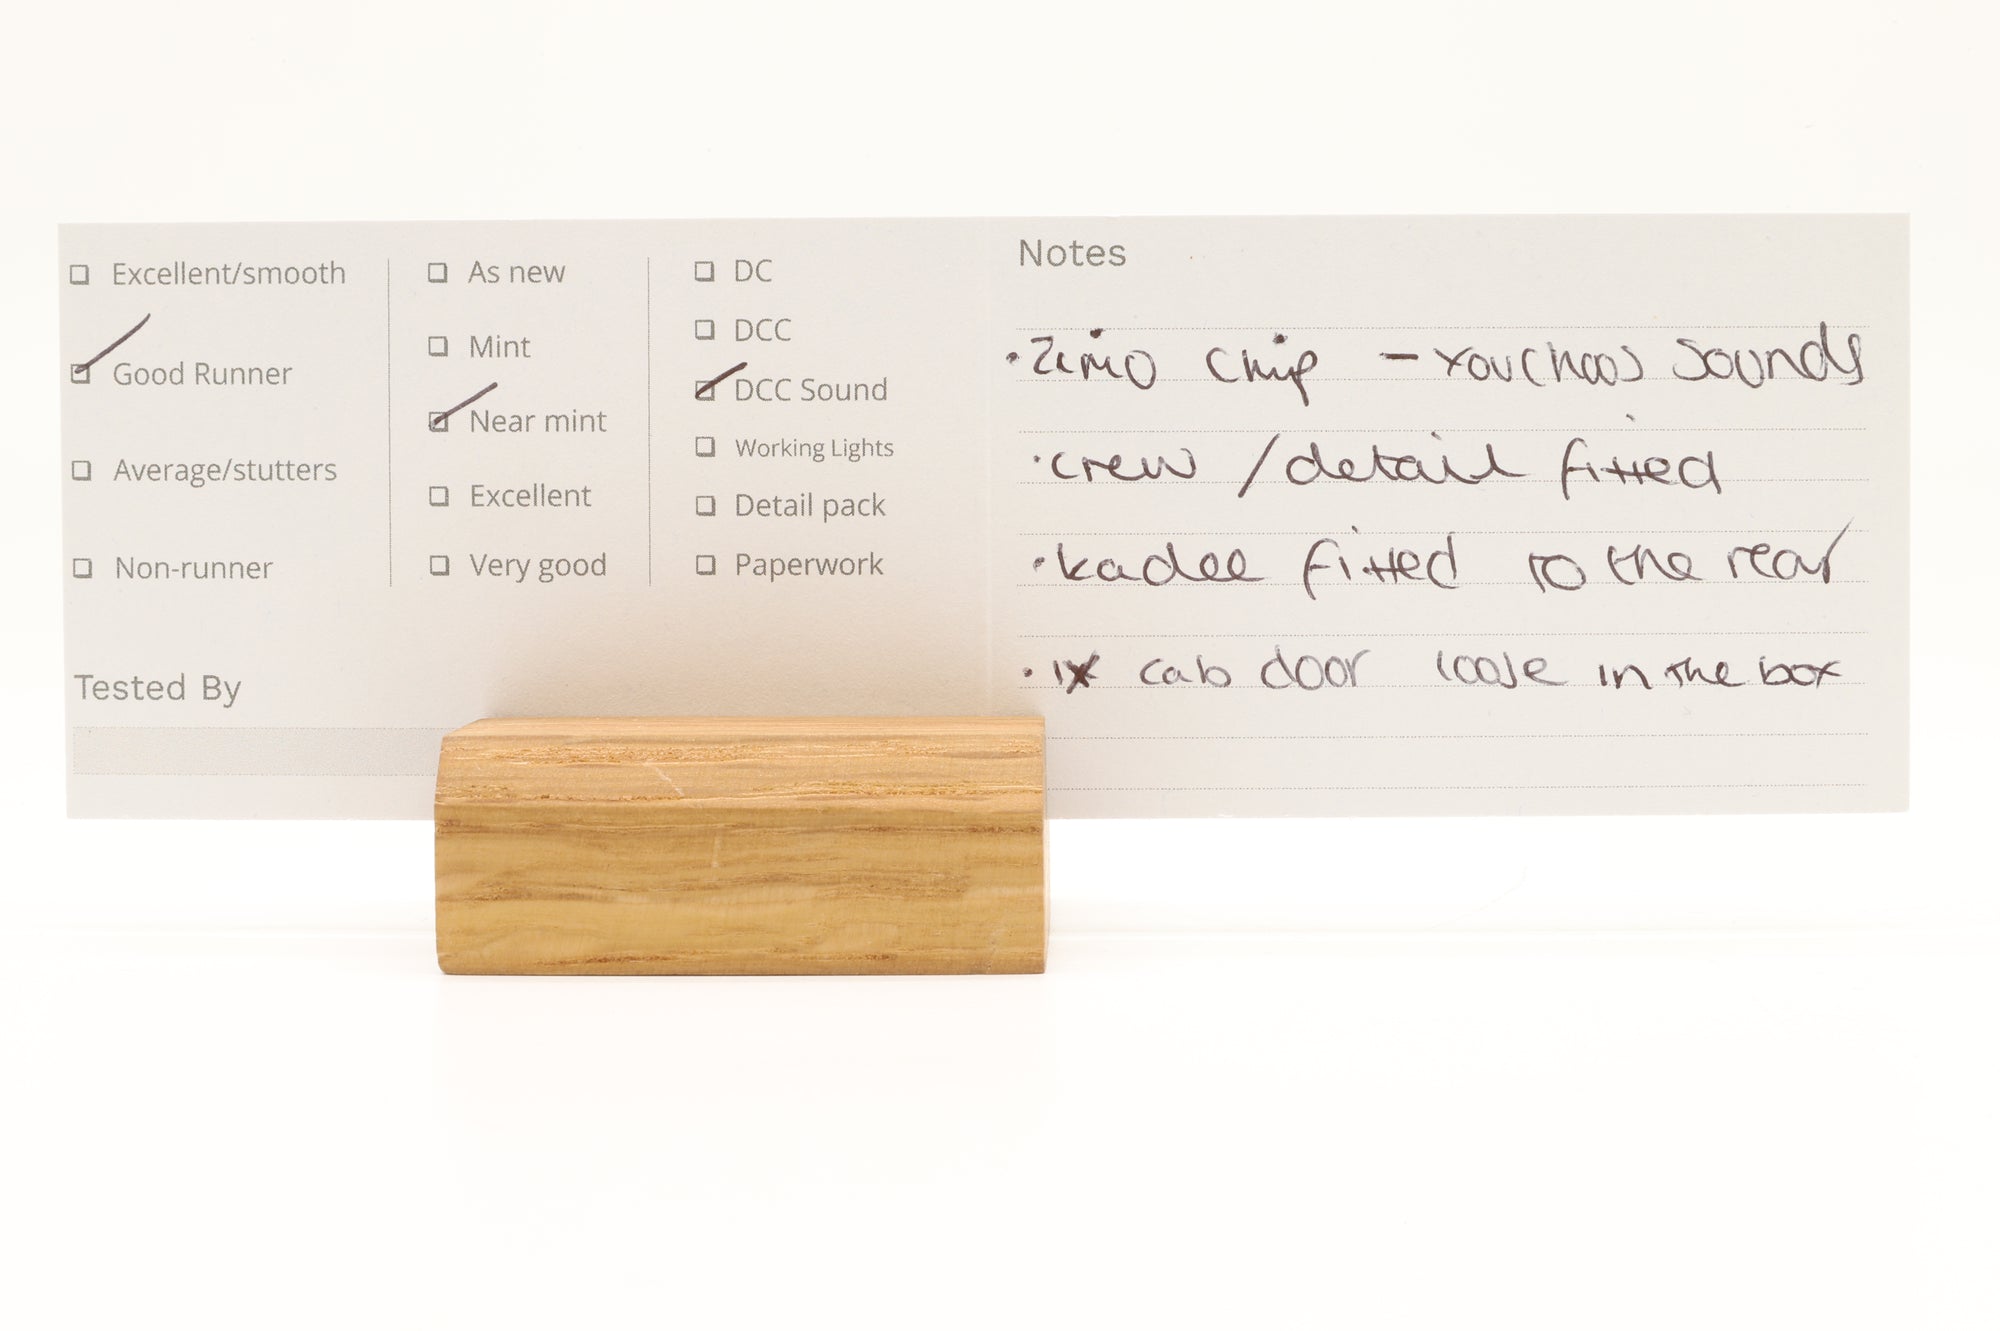 Excellent/smooth
Good Runner
Average/stutters
Non-runner
As new
Mint
Near mint
Excellent
Very good
DC
DCC
DCC Sound
Working Lights
Detail pack
Paperwork
Tested By
Notes
• Zimo Chip - Youchoos Sounds
• crew / detail fitted
• kadee fitted to the rear
• 1x cab door loose in the box